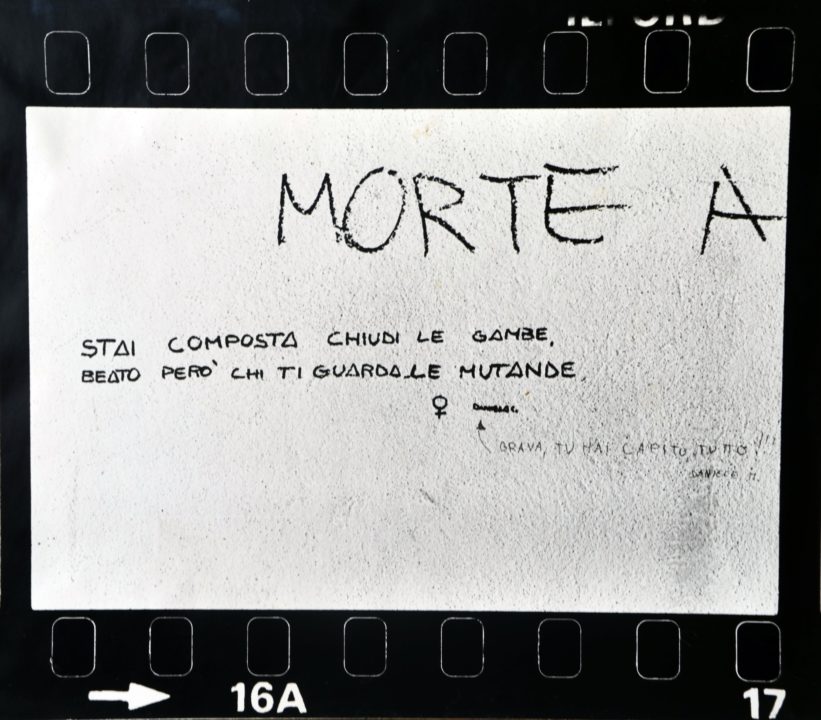 ILFORD
MORTE A
STAI COMPOSTA CHIUDI LE GAMBE,
BEATO PERÒ CHI TI GUARDA LE MUTANDE
♀
BRAVA, TU HAI CAPITO TUTTO!!!
16A
17